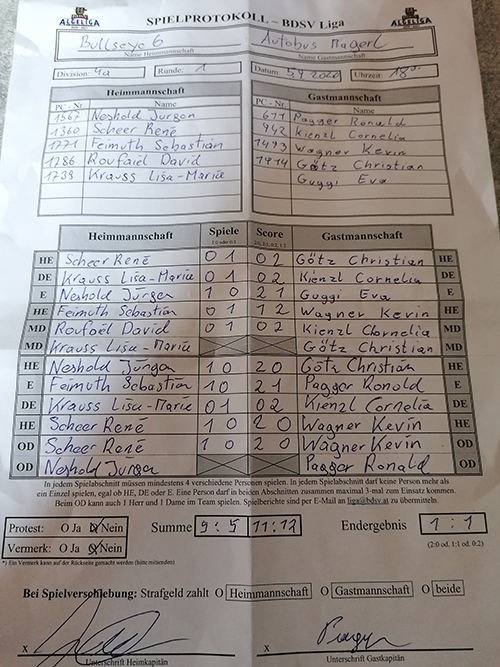 ALGELIGA SPIELPROTOKOLL – BDSV Liga ALGELIGA
Bullseye 6 Autobus Magerl
Name Heimmannschaft Name Gastmannschaft
Division: 4a Runde: 1 Datum: Uhrzeit:
Heimmannschaft Gastmannschaft
PC - Nr. Name PC - Nr. Name
1567 Neshold Jürgen 611 Pagger Ronald
1360 Scheer René 942 Kienzl Cornelia
1771 Feimuth Sebastian 1493 Wagner Kevin
1786 Roufaël David 1914 Götz Christian
1739 Krauss Lisa-Marie Guggi Eva
Heimmannschaft Spiele Score Gastmannschaft
1:0 oder 0:1 2:0, 2:1, 0:2, 1:2
HE Scheer René 0 1 0 2 Götz Christian HE
DE Krauss Lisa-Marie 0 1 0 2 Kienzl Cornelia DE
E Neshold Jürgen 1 0 2 1 Guggi Eva E
HE Feimuth Sebastian 0 1 1 2 Wagner Kevin HE
MD Roufaël David 0 1 0 2 Kienzl Cornelia MD
MD Krauss Lisa-Marie Götz Christian MD
HE Neshold Jürgen 1 0 2 0 Götz Christian HE
E Feimuth Sebastian 1 0 2 1 Pagger Ronald E
DE Krauss Lisa-Marie 0 1 0 2 Kienzl Cornelia DE
HE Scheer René 1 0 2 0 Wagner Kevin HE
OD Scheer René 1 0 2 0 Wagner Kevin OD
OD Neshold Jürgen Pagger Ronald OD
In jedem Spielabschnitt müssen mindestens 4 verschiedene Personen spielen. In jedem Spielabschnitt darf keine Person mehr als
ein Einzel spielen, egal ob HE, DE oder E. Eine Person darf in beiden Abschnitten zusammen maximal 3-mal zum Einsatz kommen.
Beim OD kann auch 1 Herr und 1 Dame im Team spielen. Spielberichte sind per E-Mail an liga@bdsv.at zu übermitteln.
Protest: O Ja O Nein Summe 9 : 5 11 : 12 Endergebnis 1 : 1
Vermerk: O Ja O Nein (2:0 od. 1:1 od. 0:2)
*) Ein Vermerk kann auf der Rückseite gemacht werden (bitte mitsenden)
Bei Spielverschiebung: Strafgeld zahlt O Heimmannschaft O Gastmannschaft O beide
x x
Unterschrift Heimkapitän Unterschrift Gastkapitän